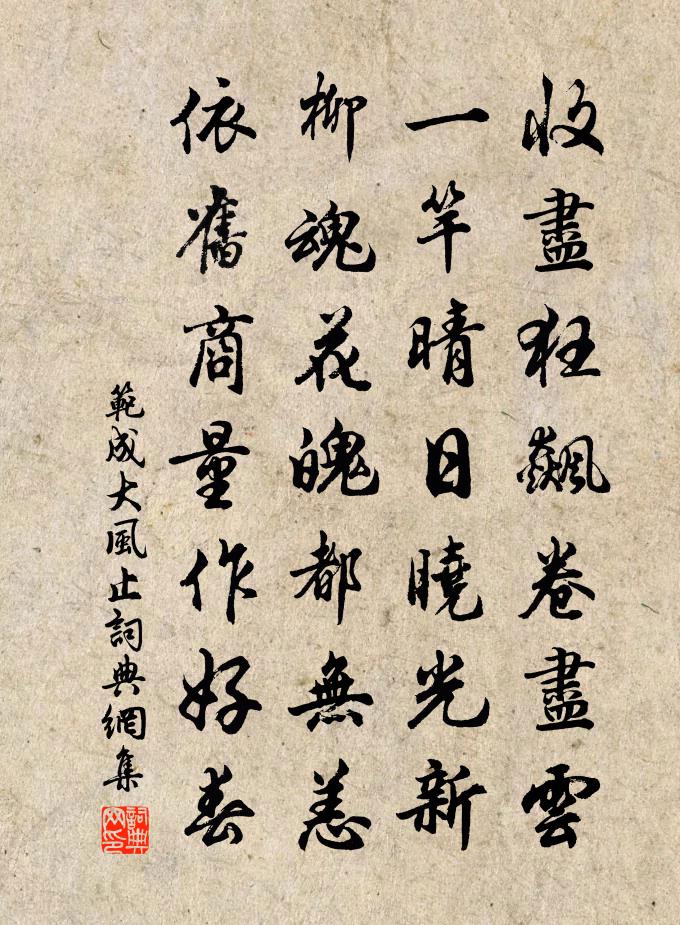 收盡狂飆卷盡雲
一竿晴日曉光新
柳魂花魄都無恙
依舊商量作好春
範成大風止詞典網集
詞典網印